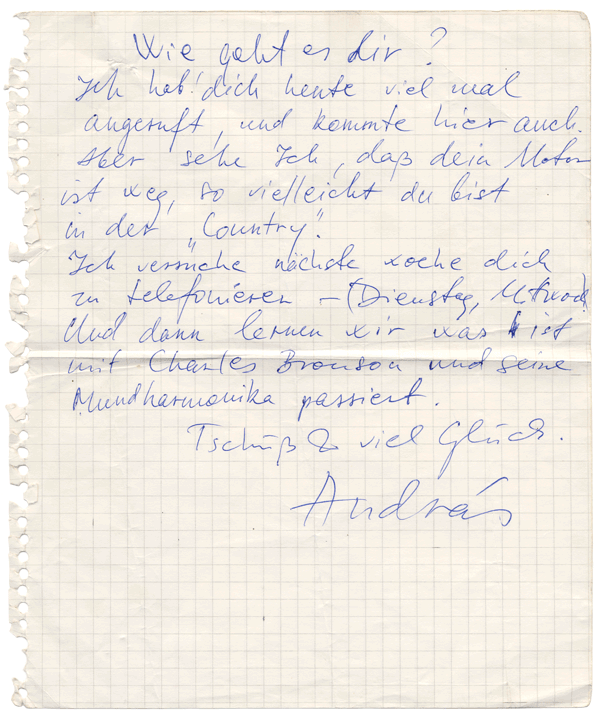 Wie geht es dir?
Ich hab' dich heute viel mal
angeruft, und kommte hier auch.
Aber sehe Ich, daß dein Motor
ist weg, so vielleicht du bist
in der „Country".
Ich versuche nächste woche dich
zu telefonieren – (Dienstag, Mitwoch)
Und dann lernen wir was ist
mit Charles Bronson und seine
Mundharmonika passiert.
Tschüß & viel Glück.
András